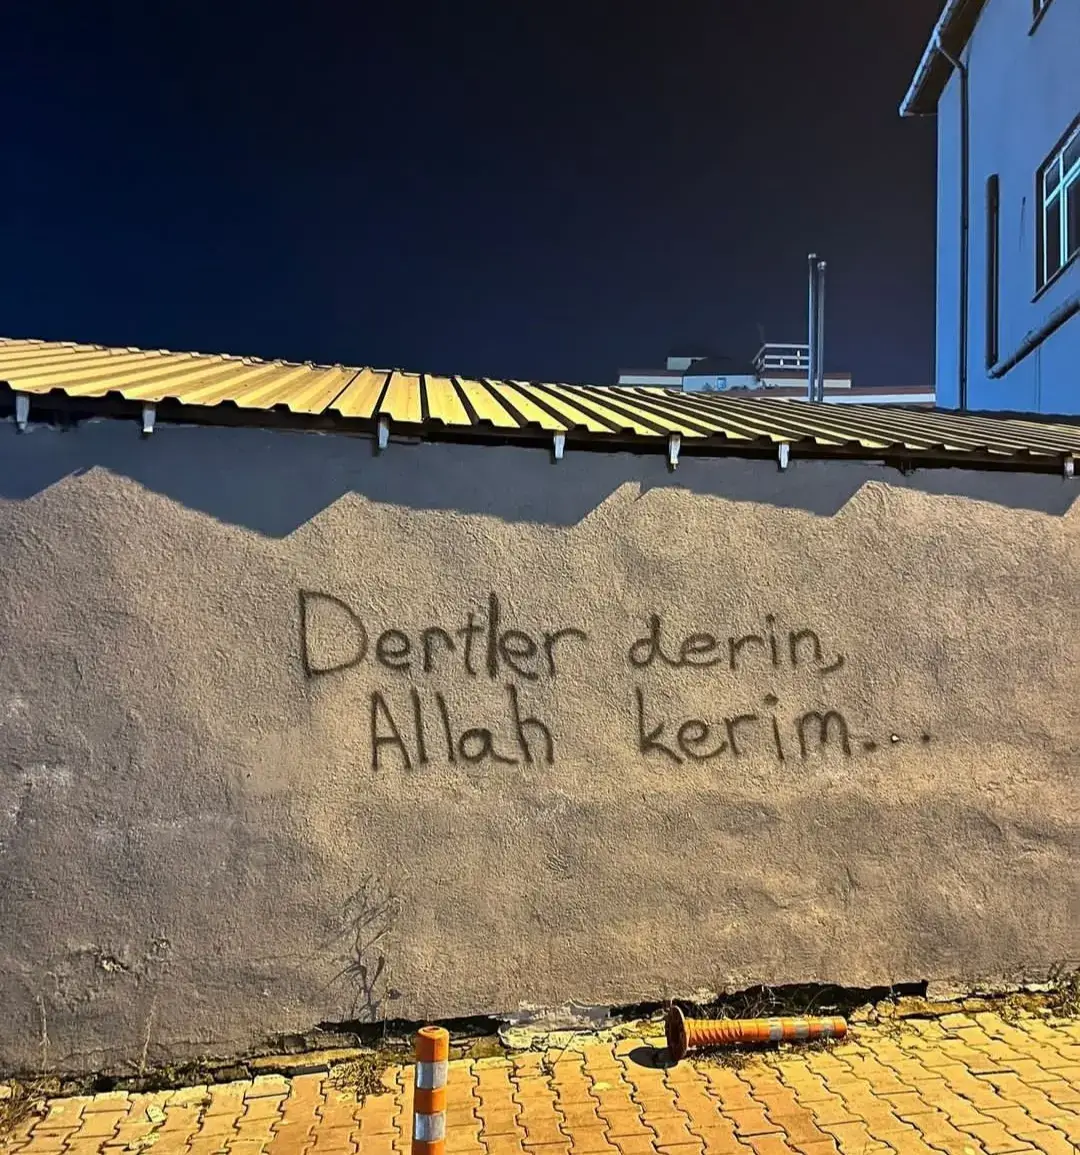 Dertler derin,
Allah kerim...